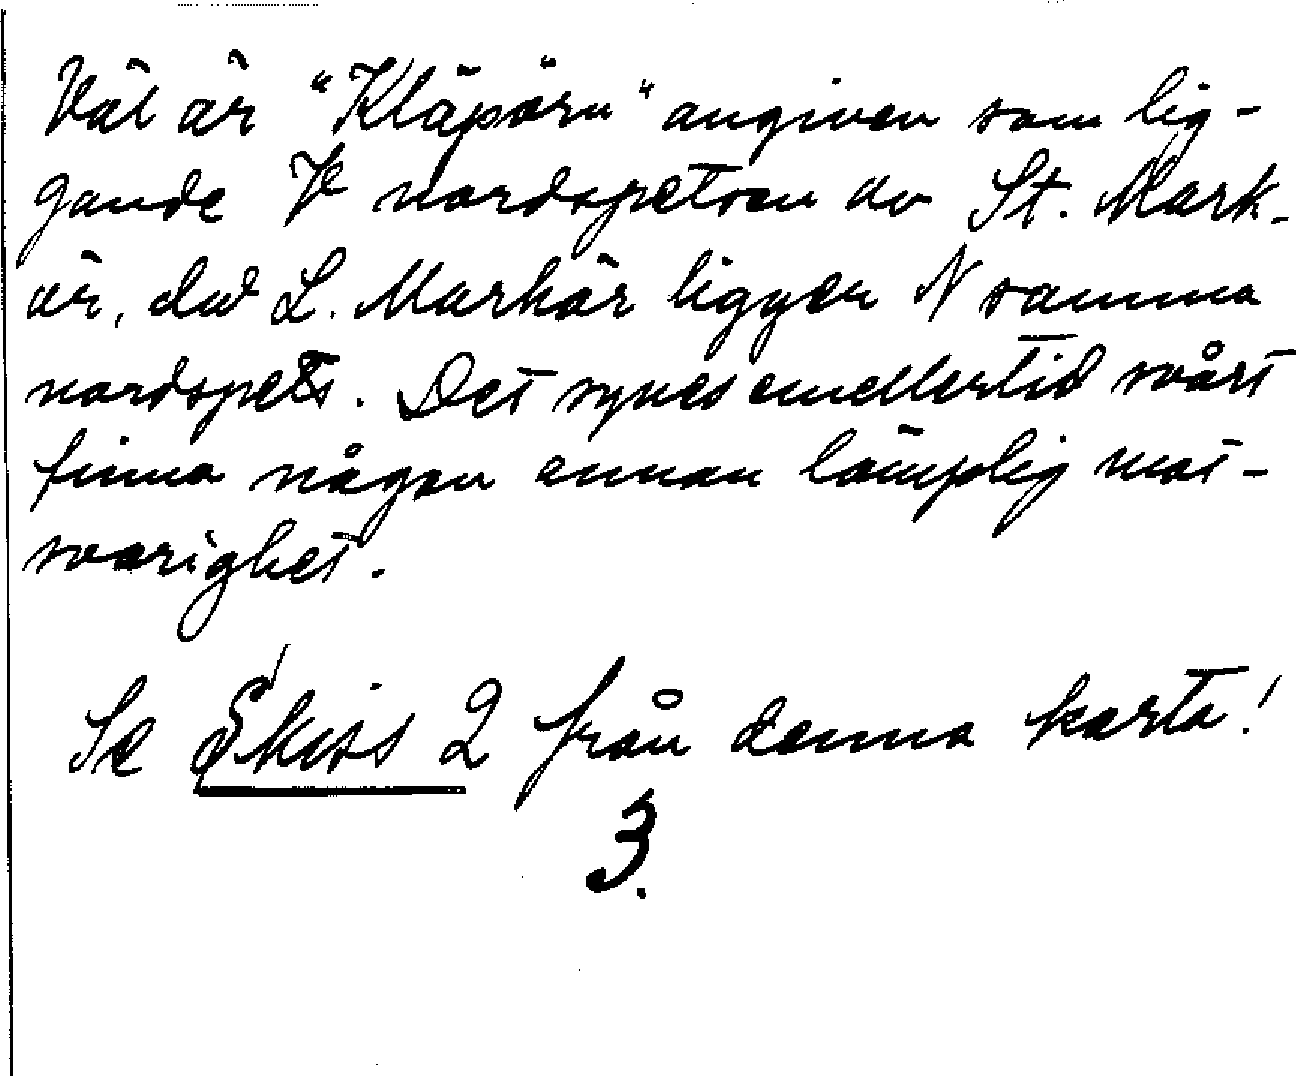 Väl är "Kläpörn" angiven som lig-
gande V nordspetsen av St. Mark-
ör, då L. Markör ligger N samma
nordspets. Det synes emellertid svårt
finna någon annan lämplig mot-
svarighet.
Se Skiss 2 från denna karta!
3.